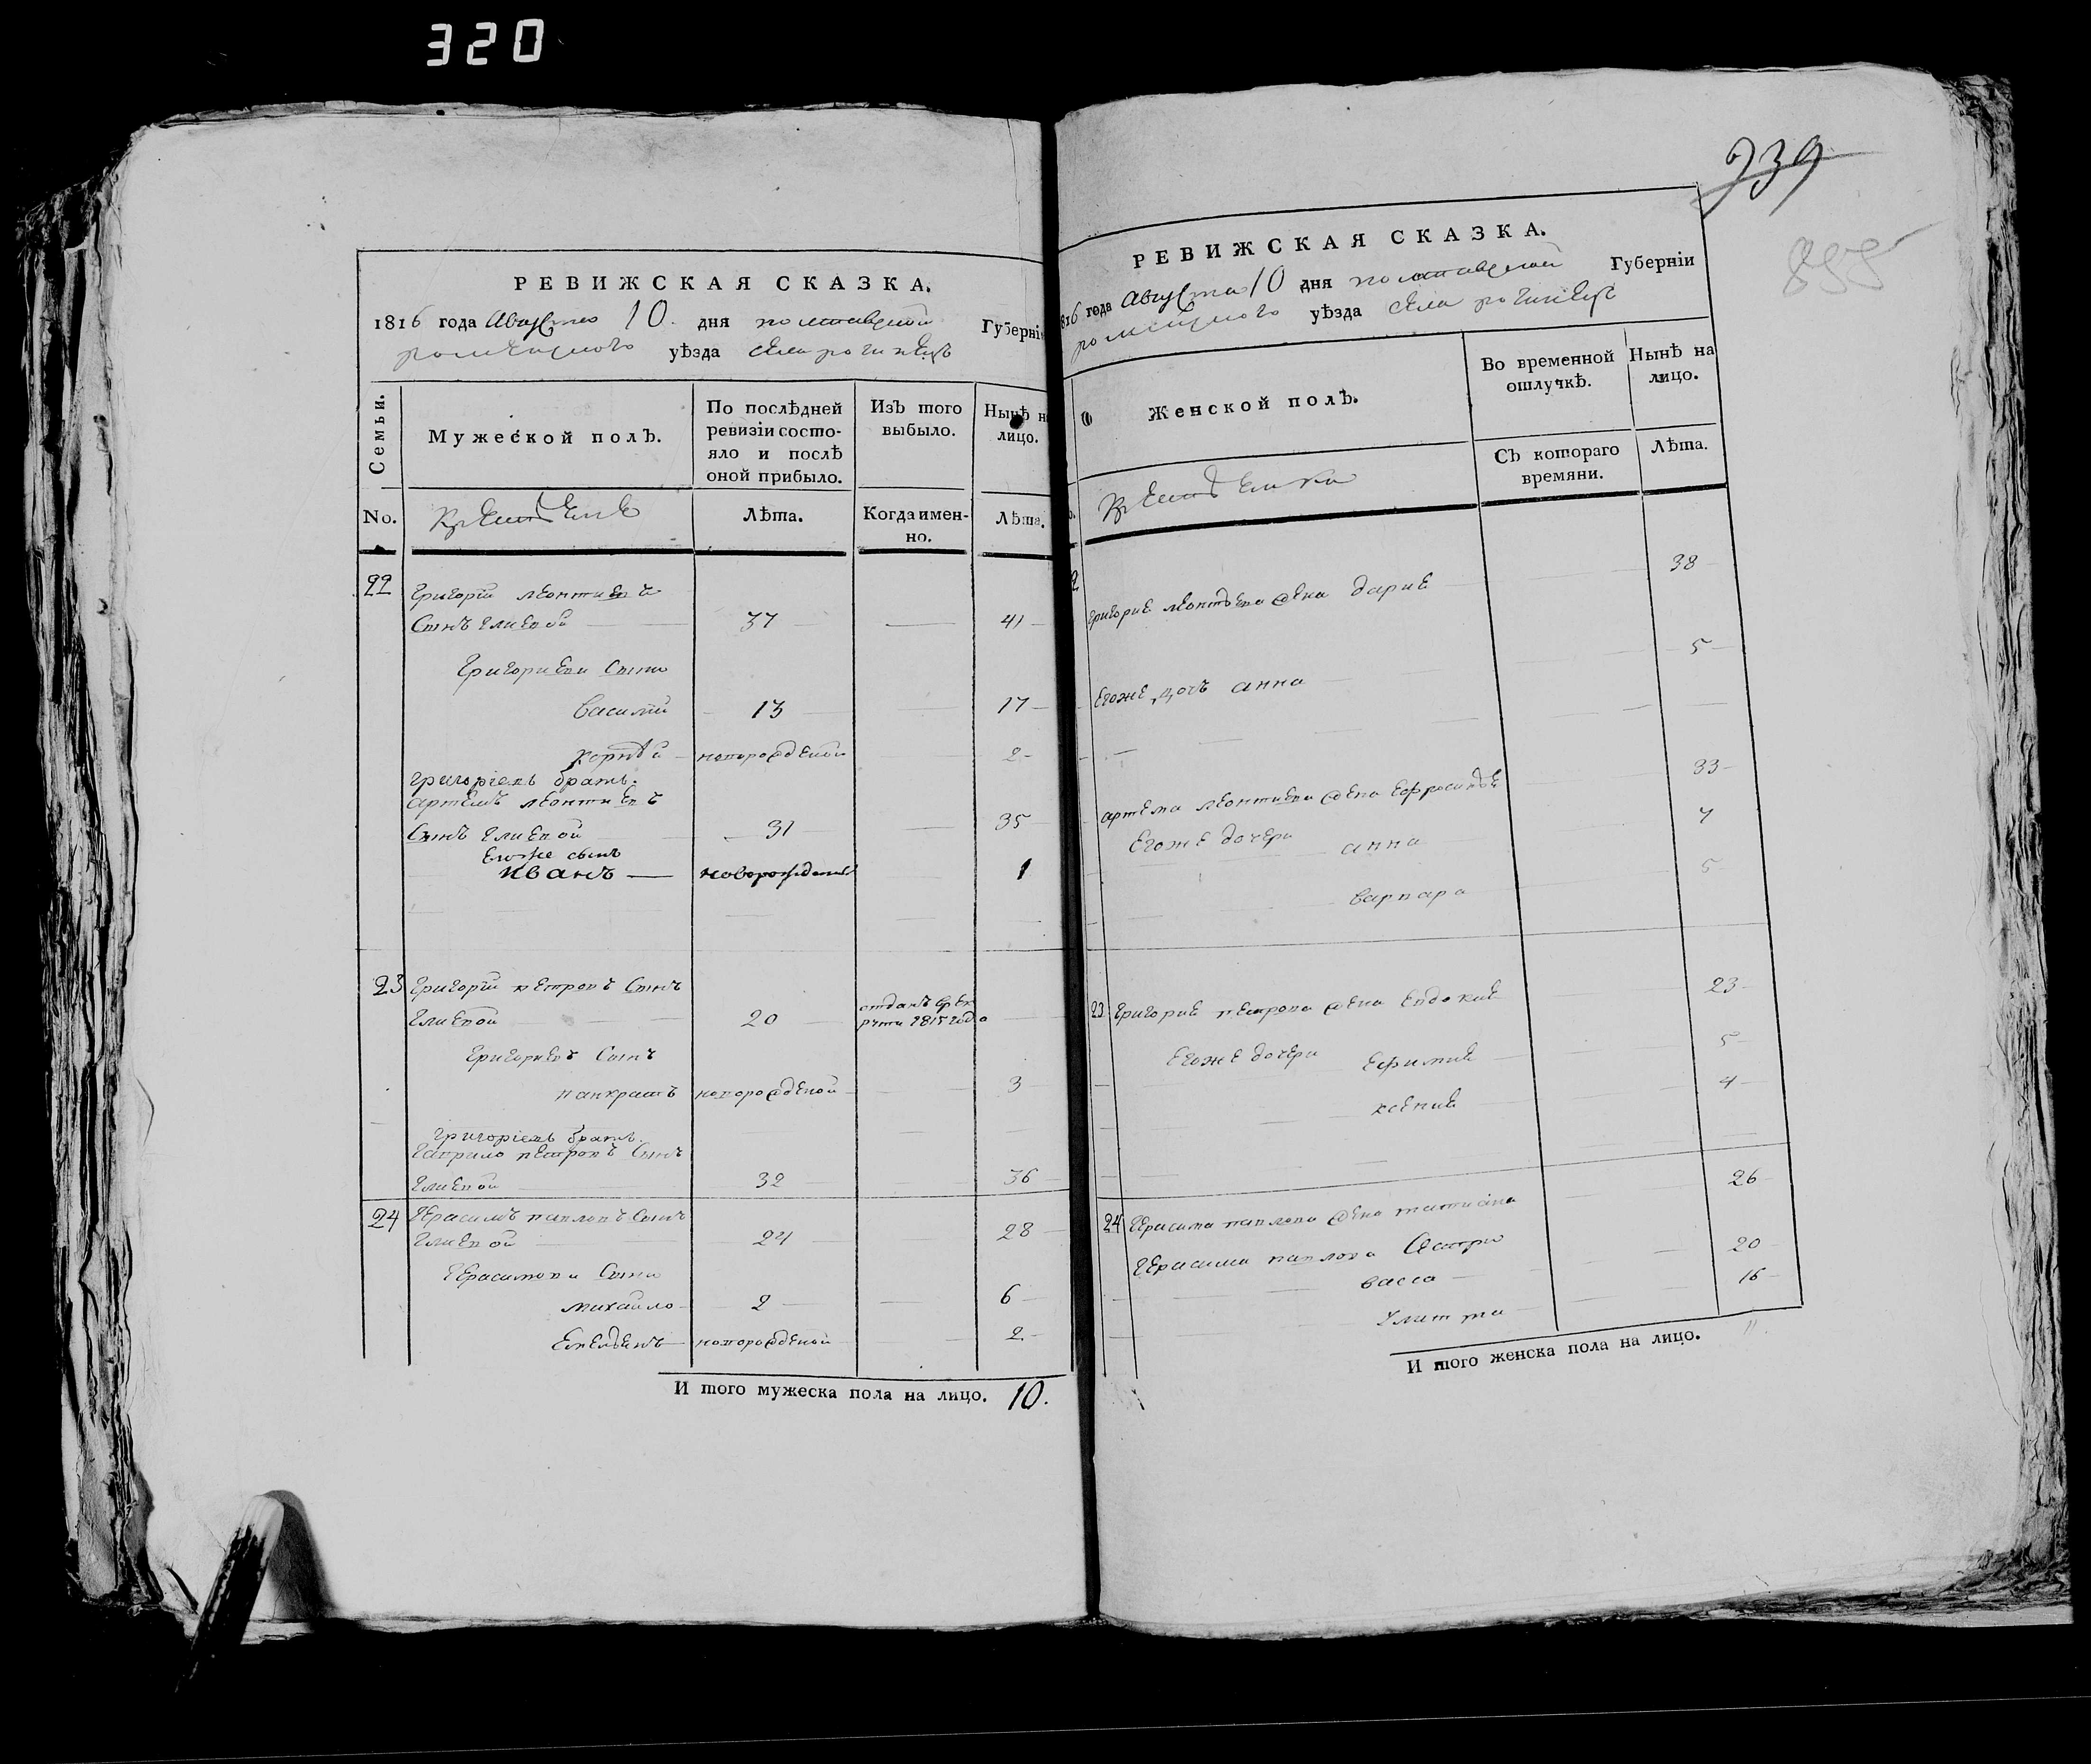 320
РЕВИЖСКАЯ СКАЗКА.
1816 года Августа 10. дня полтавской Губерніи
роменского уѣзда села рогинецъ
Семьи.
Мужеской полъ.
По послѣдней ревизіи состояло и послѣ оной прибыло.
Изъ того выбыло.
Нынѣ на лицо.
No.
Лѣта.
Когда именно.
Лѣта.
22 Григорій леонтиевъ
Сынъ глиевой 37 41
Григориеви Сыни
василій 13 17
корнѣй новорожденой 2
григоріевъ братъ.
артемъ леонтиевъ
Сынъ глиевой 31 35
Егоже сынъ
Иванъ новорожденный 1
23 Григорій петровъ Сынъ
глиевой 20 отданъ в рекруты 1815 года
Григориевъ Сынъ
панкратъ новорожденой 3
григоріевъ братъ.
Гаврило петровъ Сынъ
глиевой 32 36
24 Герасимъ павловъ Сынъ
глиевой 24 28
Герасимови Сыни
михайло 2 6
новорожденой 2
И того мужеска пола на лицо. 10.
739
РЕВИЖСКАЯ СКАЗКА.
1816 года Августа 10 дня полтавской Губерніи
роменского уѣзда села рогинецъ
Женской полъ.
Во временной отлучкѣ.
Нынѣ на лицо.
Съ котораго времяни.
Лѣта.
38
григорие леонтъева жена дарие
5
Егоже дочъ анна
33
артема леонтиева жена Ефросинъе
Егоже дочери анна 7
варвара 5
23 григорие петрова жена Евдокие 23
Егоже дочери Ефимие 5
ксение 4
24 Герасима павлова жена татиана 26
Герасима павлова Сестри
васса 20
улитта 16
И того женска пола на лицо. 11.